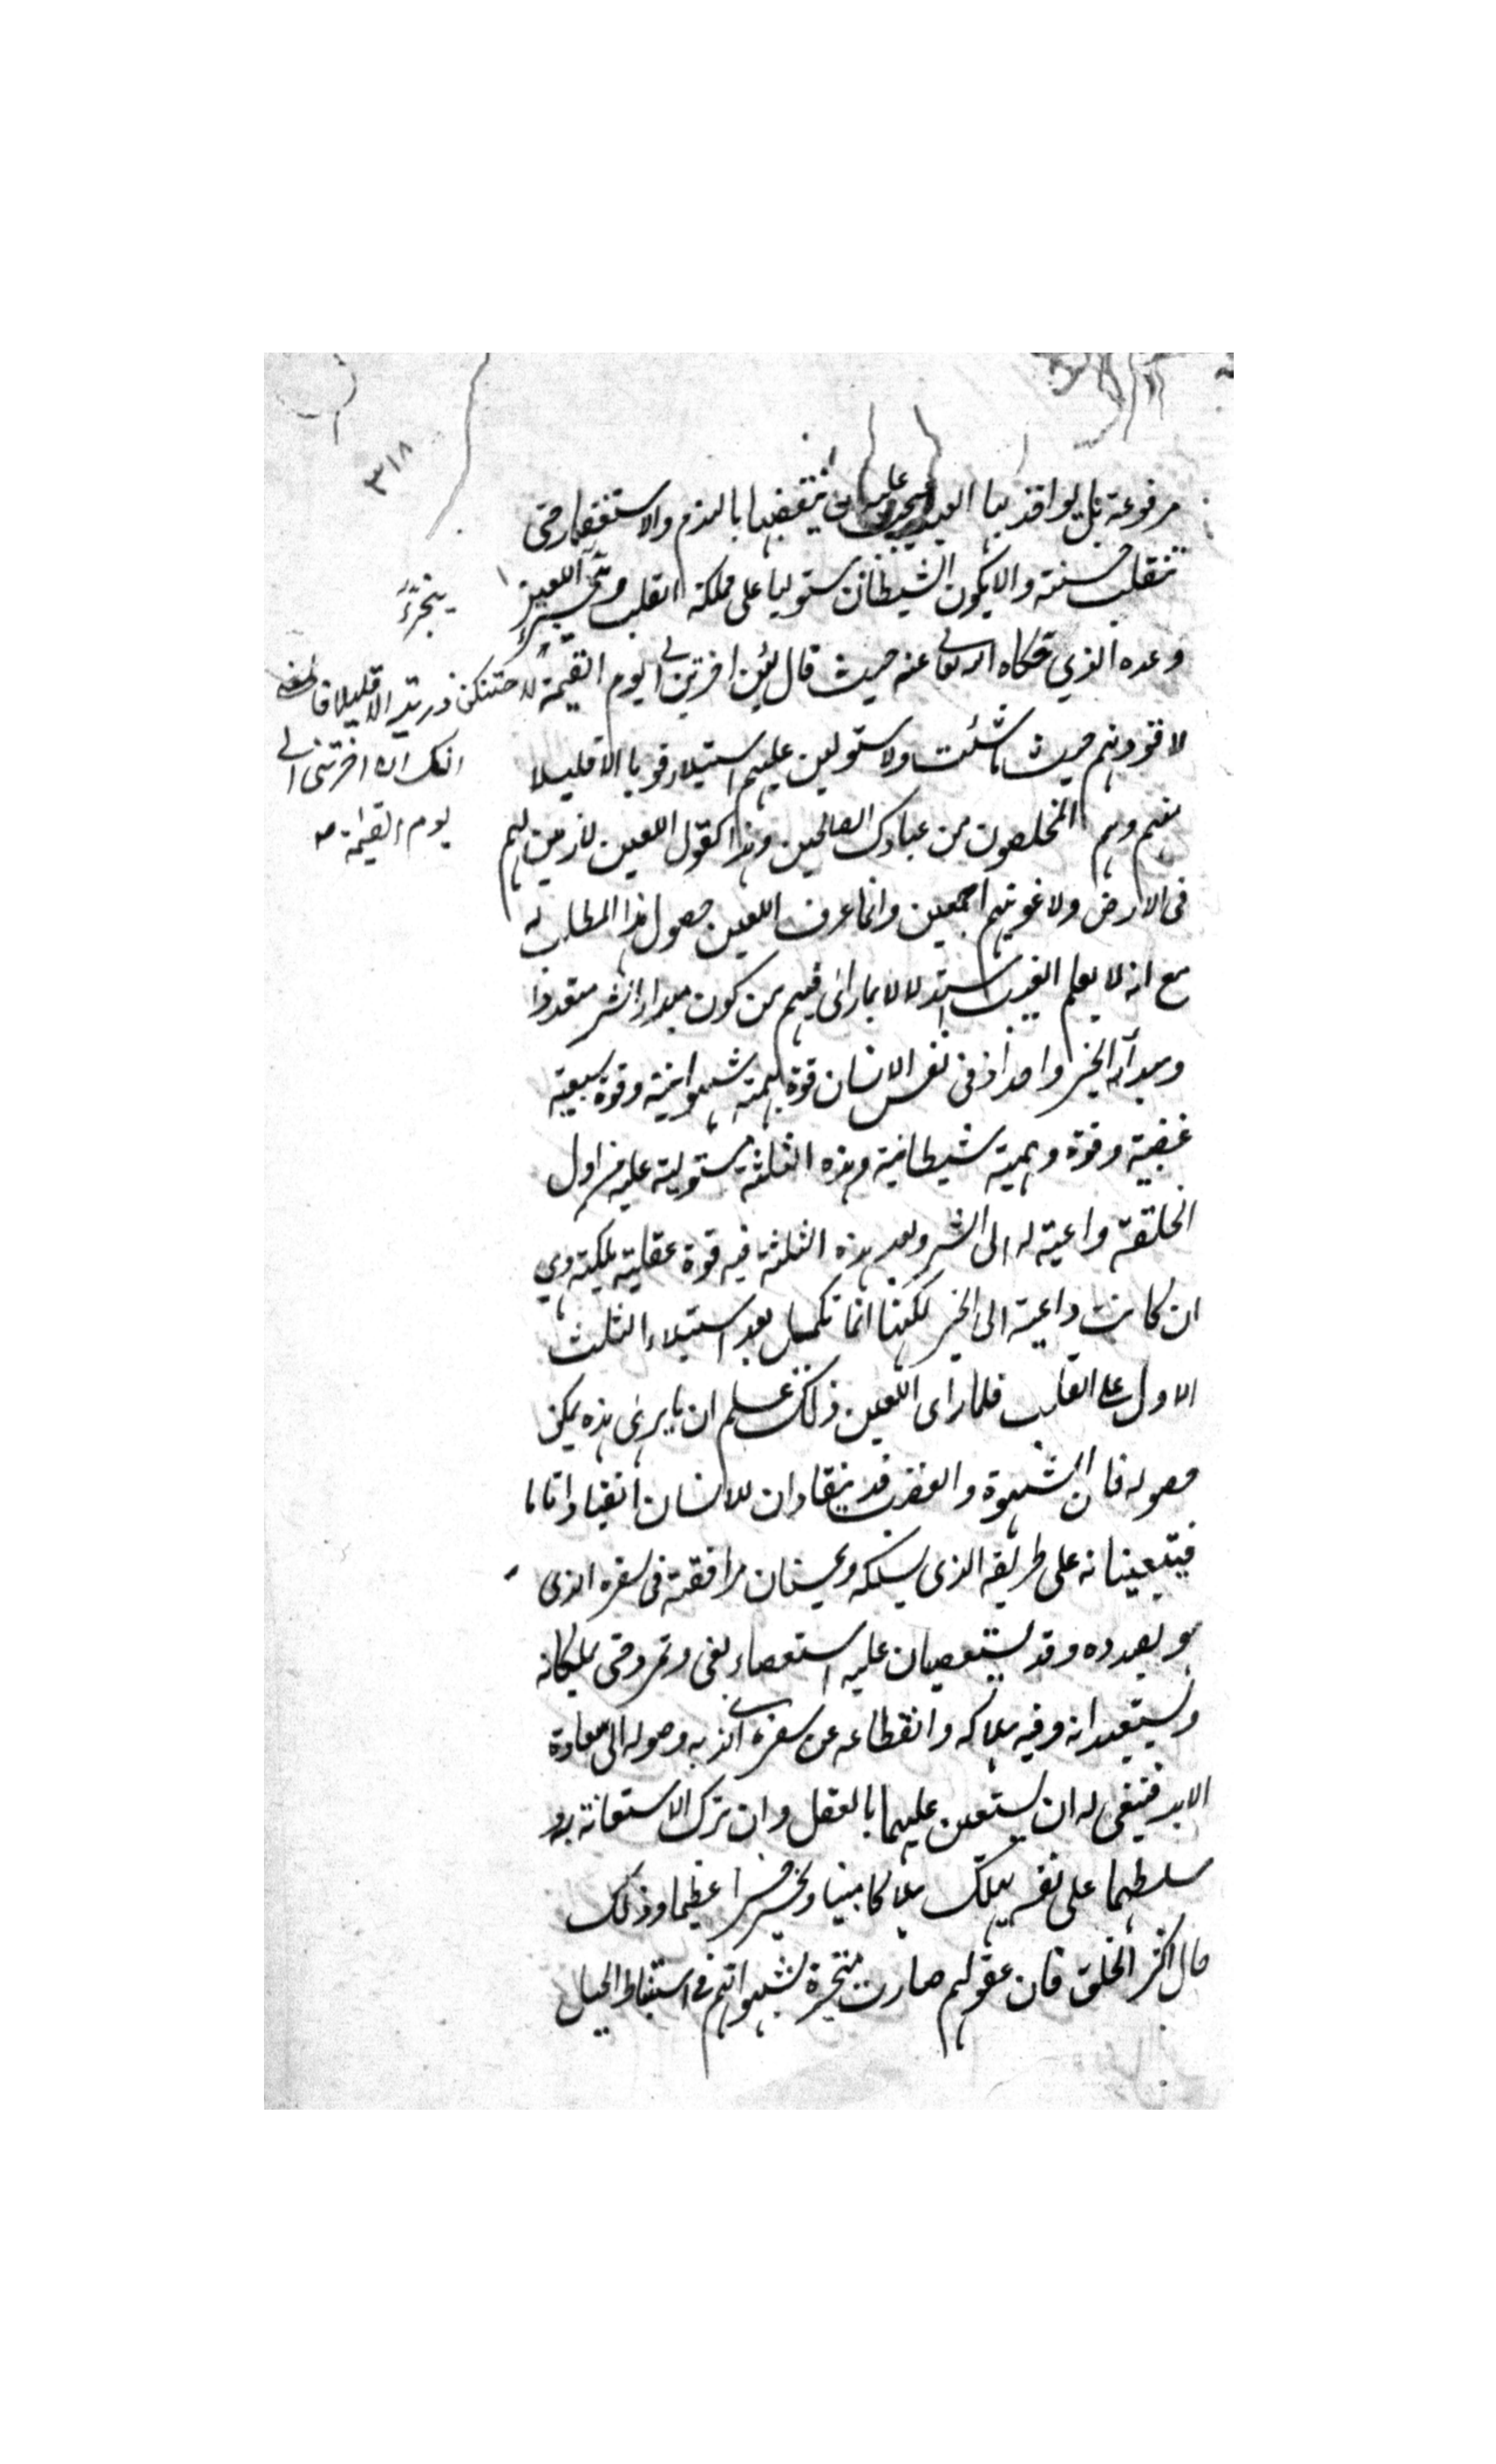 ٣١٨
مرفوعة بل يواخذ بها العبد فيجب عليه ان ينقضها بالندم والاستغفار حتى
تنقلب حسنة والا يكون الشيطان مستوليا على مملكة القلب و اللعين
ينجز
وعده الذي حكاه الله تعالى عنه حيث قال لئن اخرتن الى يوم القيمة لاحتنكن ذريته الا قليلا
انك ان اخرتنى الى
يوم القيمة
لاقودنهم حيث ما شئت ولاستولين عليهم استيلاء قويا الا قليلا
منهم وهم المخلصون من عبادك الصالحين وهذا كقول اللعين لازينن لهم
فى الارض ولاغوينهم اجمعين وانما عرف اللعين حصول هذا المطلب له
مع انه لا يعلم الغيب استدلالا بما راى فيهم من كون مبداء الشر متعددا
ومبدأ الخير واحدا اذ فى نفس الانسان قوة بهيمية شهوانية وقوة سبعية
غضبية وقوة وهمية شيطانية وهذه الثلثة مستولية عليه من اول
الخلقة داعية له الى الشر وبعد هذه الثلثة فيه قوة عقلية ملكية وهي
ان كانت داعية الى الخير لكنها انما تكمل بعد استيلاء الثلث
الاول على القلب فلما راى اللعين ذلك علم ان ما يرى هذه يمكن
حصوله فان الشهوة والغضب قد ينقادان للانسان انقيادا تاما
فيتعينانه على طريقه الذى يسلكه ويحسنان مرافقته فى سفره الذى
هو بصدده وقد يستعصيان عليه استعصاء بغى وتمرد حتى يملكانه
ويستعبدانه وفيه هلاكه وانقطاعه عن سفره الذى به وصوله الى سعادة
الابد فينبغى له ان يستعين عليهما بالعقل وان ترك الاستعانة به و
سلطهما على نفسه يهلك هلاكا مبينا ويخسر خسرا عظيما وذلك
حال اكثر الخلق فان عقولهم صارت مسخرة لشهواتهم فى استنباط الحيل